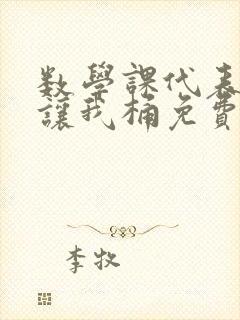 数學課代表
讓我桶免費
李牧